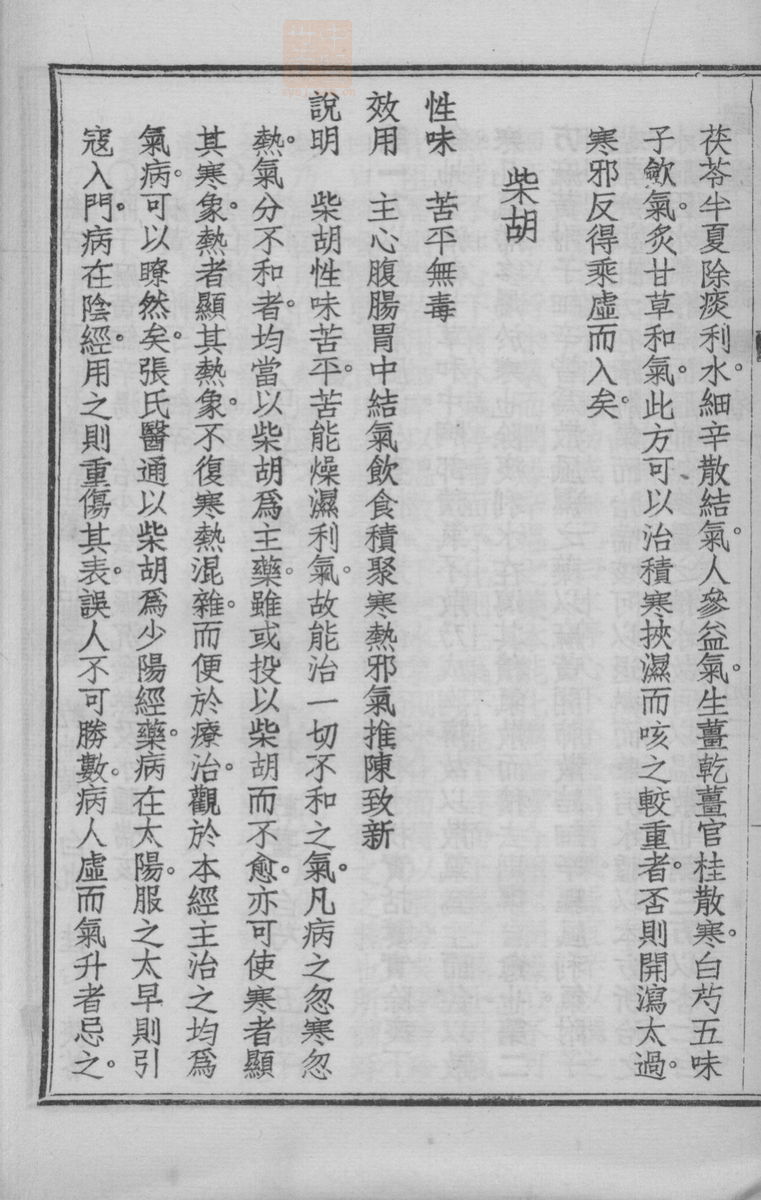 茯苓半夏除痰利水。細辛散結氣。人參益氣。生薑乾薑官桂散寒。白芍五味
子歛氣。炙甘草和氣。此方可以治積寒挾濕而咳之較重者。否則開瀉太過。
寒邪反得乘虛而入矣。
柴胡
性味　苦平無毒
效用　主心腹腸胃中結氣飲食積聚寒熱邪氣推陳致新
說明　柴胡性味苦平。苦能燥濕利氣。故能治一切不和之氣。凡病之忽寒忽
熱。氣分不和者。均當以柴胡爲主藥。雖或投以柴胡而不愈。亦可使寒者顯
其寒象。熱者顯其熱象。不復寒熱混雜。而便於療治。觀於本經主治之均爲
氣病。可以瞭然矣。張氏醫通以柴胡爲少陽經藥。病在太陽。服之太早則引
寇入門。病在陰經。用之則重傷其表。誤人不可勝數。病人虛而氣升者忌之。